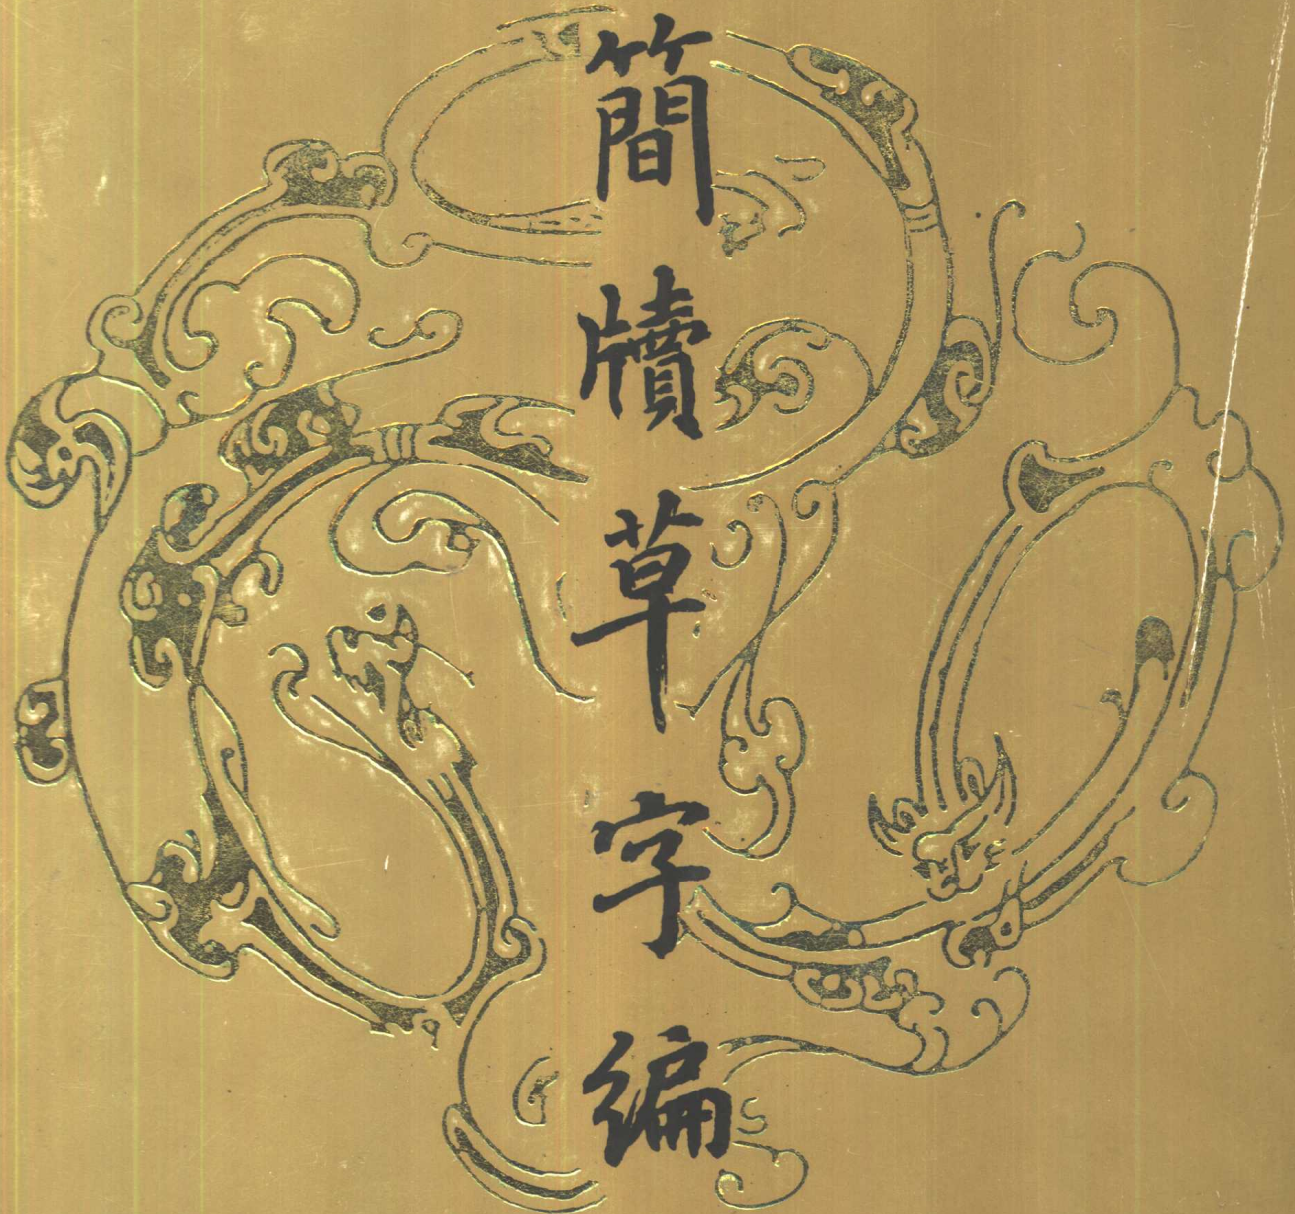 簡牘草字編